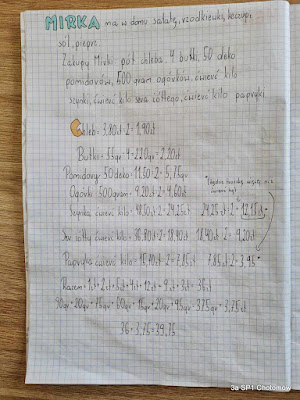 MIRKA ma w domu sałatę, rzodkiewki, keczup,
sól, pieprz.
Zakupy Mirki: pół chleba, 4 bułki, 50 deko
pomidorów, 500 gram ogórków, ćwierć kilo
szynki, ćwierć kilo sera żółtego, ćwierć kilo papryki
Chleb = 3,80zł : 2 = 1,90zł
Bułka = 55gr · 4 = 220gr = 2,20zł
Pomidory 50 deko = 11,50 : 2 = 5,75gr
Ogórki 500gram = 9,20zł : 2 = 4,60zł
Szynka ćwierć kilo = 48,50zł : 2 = 24,25zł 24,25zł : 2 =
Ser żółty ćwierć kilo = 36,80zł : 2 = 18,40zł 18,40zł : 2 = 9,20zł
Papryka ćwierć kilo = 15,70zł : 2 = 7,85zł 7,85zł : 2 =
Razem = 1zł + 2zł + 5zł + 4zł + 12zł + 9zł + 3zł = 36zł
90gr + 20gr + 75gr + 60gr + 15gr + 20gr + 95gr = 375gr = 3,75zł
36 + 3,75 = 39,75
3a SP1 Chotomów